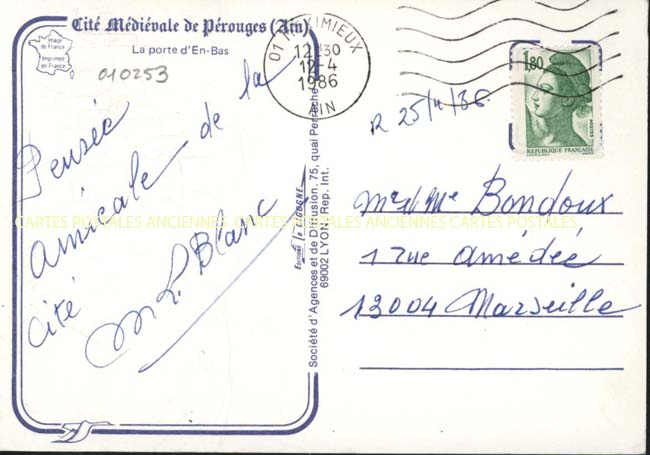 Cité Médiévale de Pérouges (Ain)
La porte d'En-Bas
Image
de France
Imprimée
en France
010253
Pensée
Amicale de la
Cité
M L. Blanc
CARTES POSTALES ANCIENNES CARTES POSTALES ANCIENNES CARTES POSTALES ANCIENNES
Editions La CIGOGNE
Société d'Agences et de Diffusion. 75, quai Perrache
69002 LYON. Rep. Int.
01 MEXIMIEUX
12-30
12-4
1986
AIN
1,80
POSTES
REPUBLIQUE FRANÇAISE
R 25/4/86
Mr et Me Bondoux
1 rue amédée
13004 Marseille